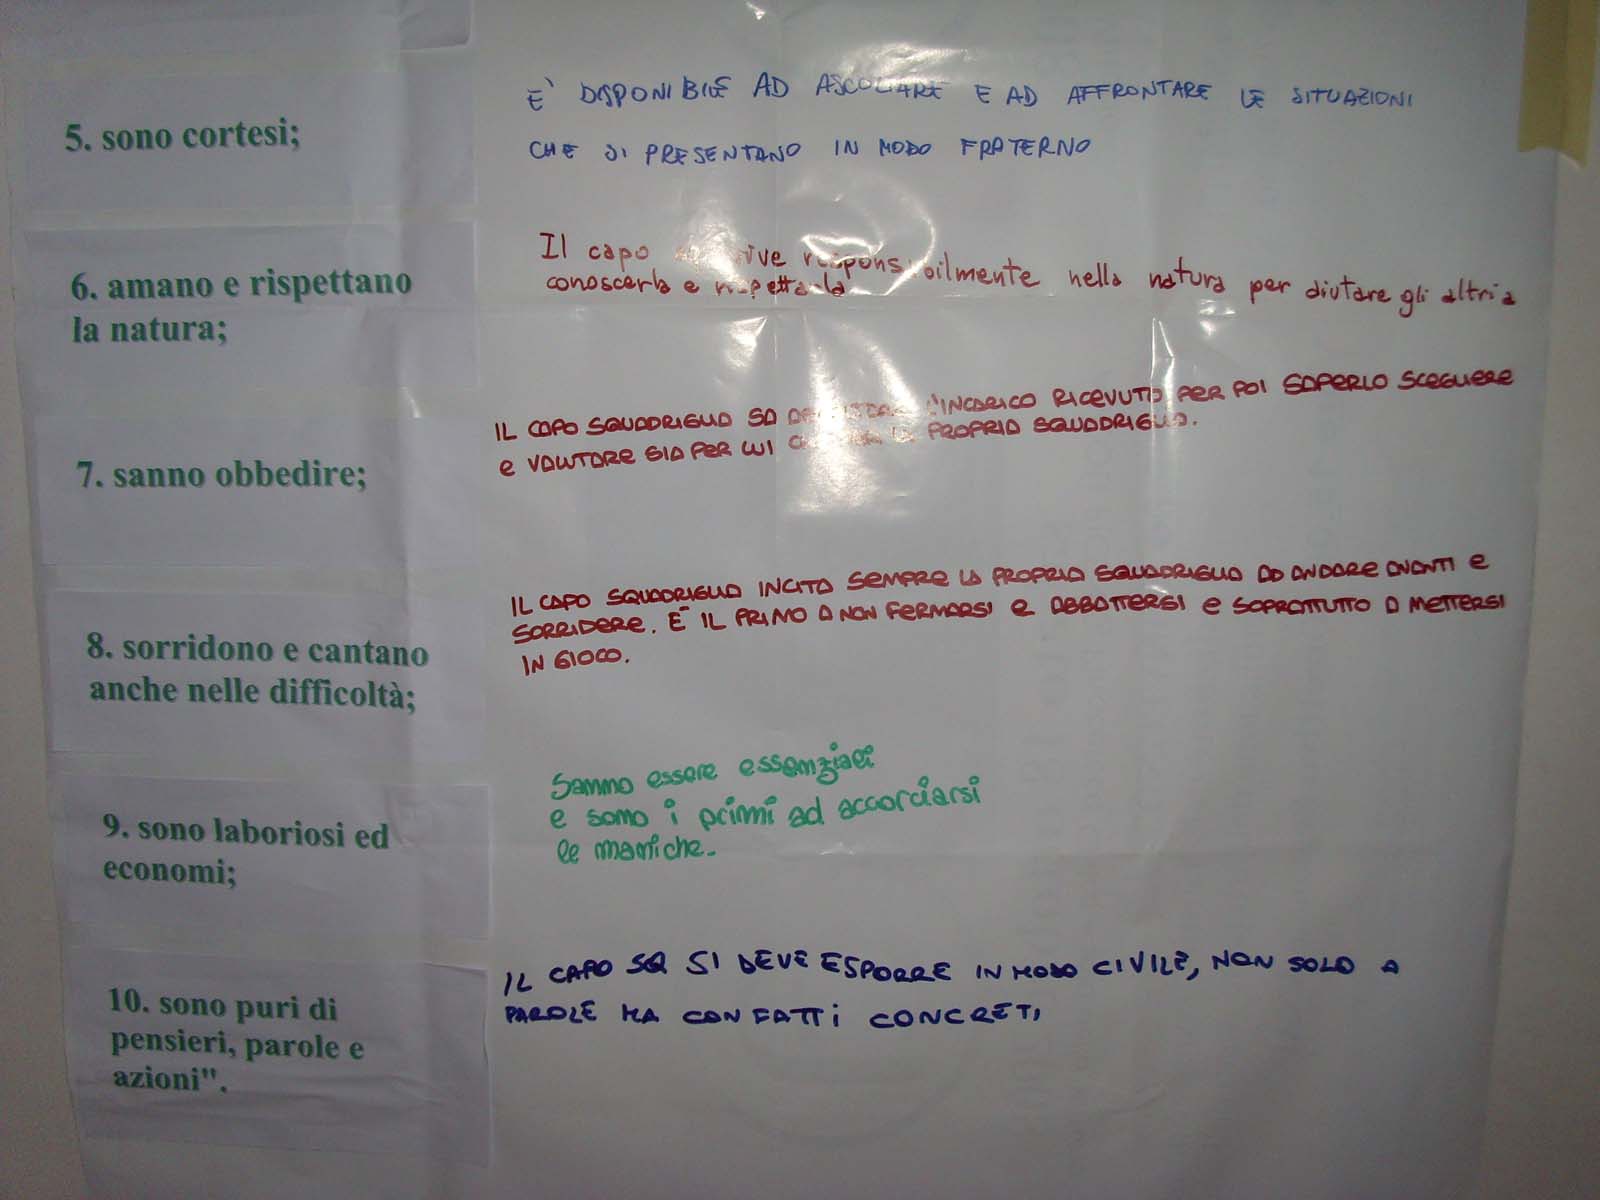 5. sono cortesi;
E' DISPONIBILE AD ASCOLTARE E AD AFFRONTARE LE SITUAZIONI
CHE SI PRESENTANO IN MODO FRATERNO
6. amano e rispettano
la natura;
Il capo vive responsabilmente nella natura per aiutare gli altri a
conoscerla e rispettarla
7. sanno obbedire;
IL CAPO SQUADRIGLIA SA L'INCARICO RICEVUTO PER POI SAPERLO SCEGLIERE
E VALUTARE SIA PER LUI LA PROPRIA SQUADRIGLIA.
8. sorridono e cantano
anche nelle difficoltà;
IL CAPO SQUADRIGLIA INCITA SEMPRE LA PROPRIA SQUADRIGLIA AD ANDARE AVANTI E
SORRIDERE. È IL PRIMO A NON FERMARSI E ABBATTERSI E SOPRATTUTTO A METTERSI
IN GIOCO.
9. sono laboriosi ed
economi;
Sanno essere essenziali
e sono i primi ad accorciarsi
le maniche.
10. sono puri di
pensieri, parole e
azioni".
IL CAPO SQ SI DEVE ESPORRE IN MODO CIVILE, NON SOLO A
PAROLE MA CON FATTI CONCRETI